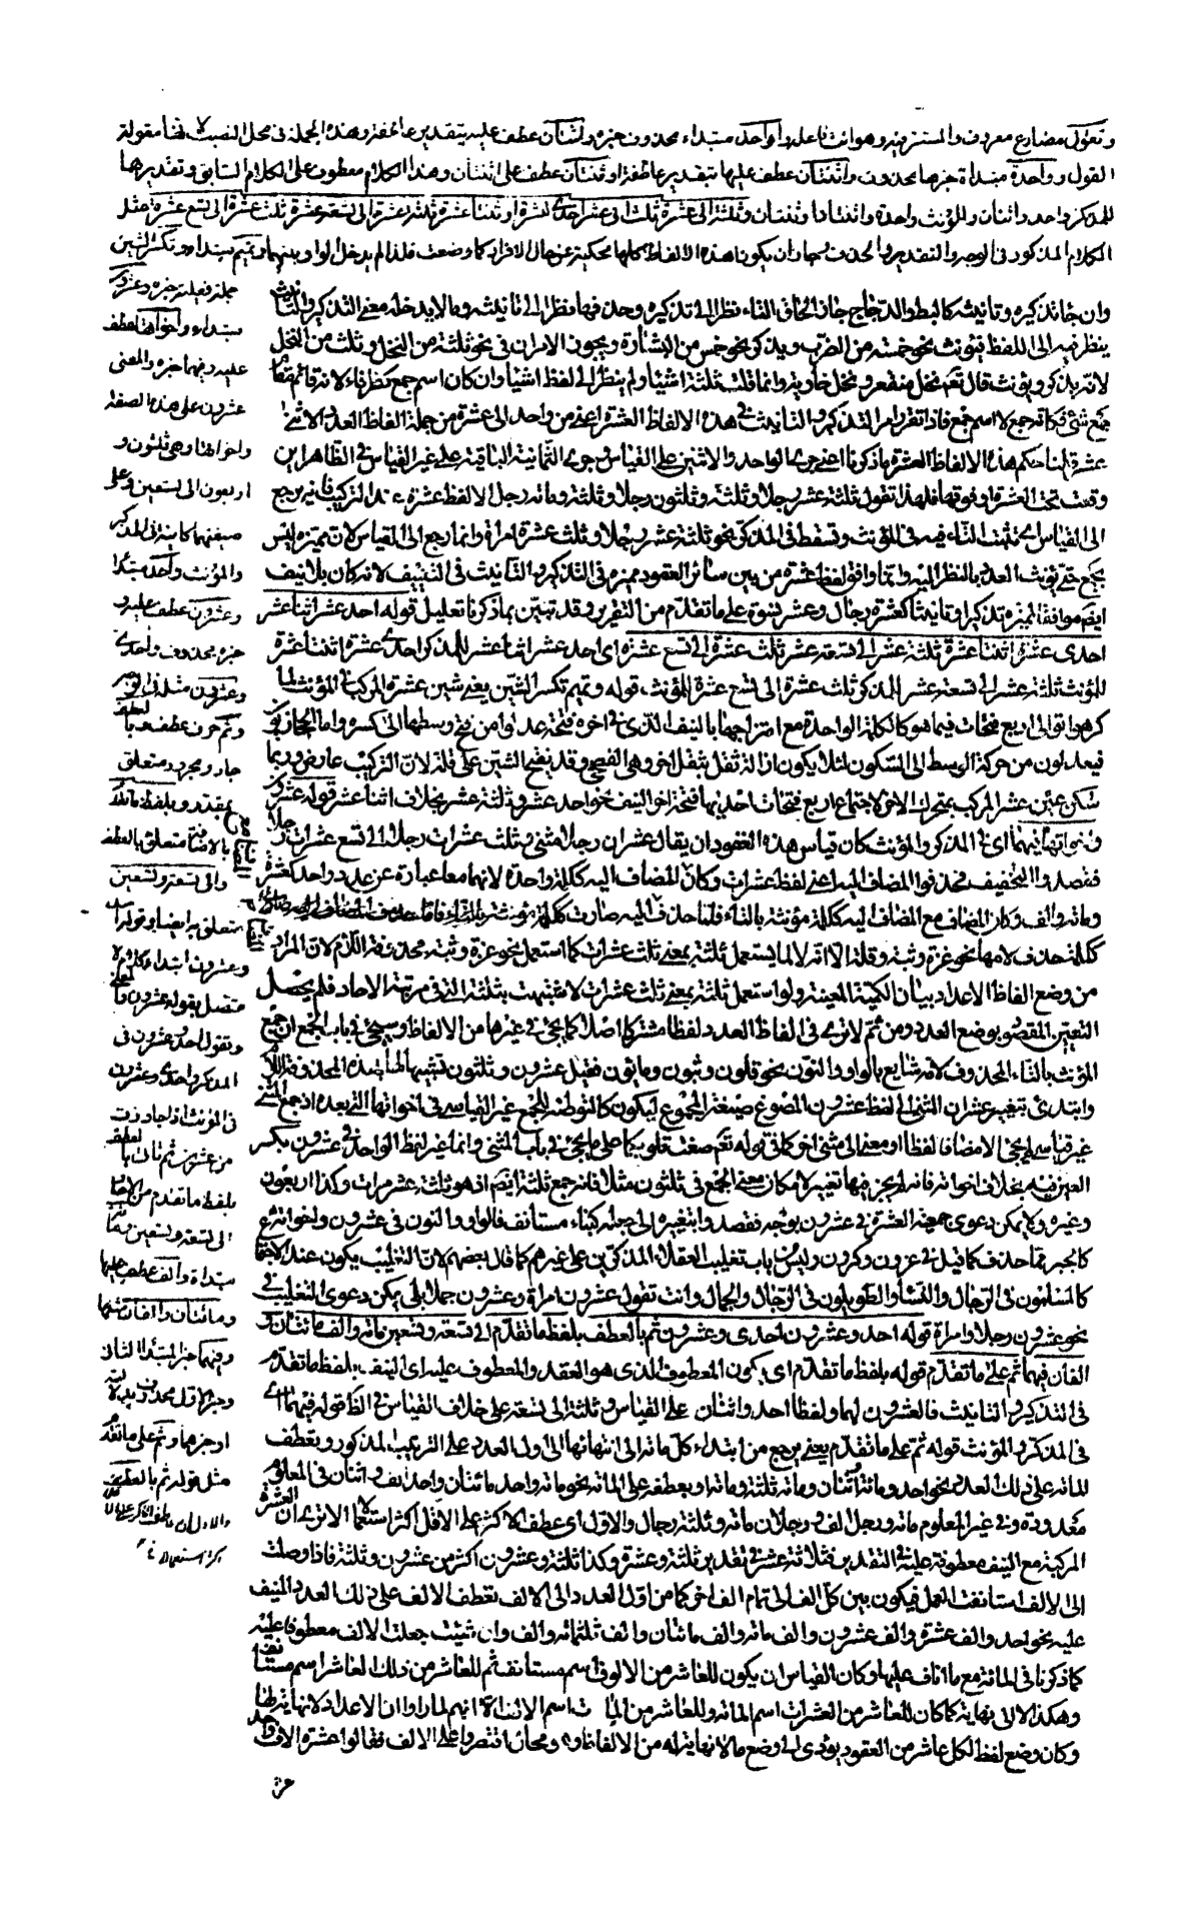 وتقول مضارع معروف والمستتر فيه وهو انت فاعله واحد مبتداء محذوف خبره واثنان عطف عليه بتقدير عاطفة وهذه الجملة في محل النصب لانها مقولة
القول وواحدة مبتداة خبرها محذوف واثنتان عطف عليها بتقدير عاطفة او ثنتان عطف على اثنتان وهذا الكلام معطوف على الكلام السابق وتقديرها
للمذكر واحد واثنان وللمؤنث واحدة واثنتان او ثنتان وثلثة الى عشرة ثلث الى عشر احد عشر اثنا عشر احدى عشرة اثنتا عشرة ثلثة عشر الى تسعة عشر ثلث عشرة الى تسع عشرة مثل
الكلام المذكور في الوجه والتقدير والحذف وجاز ان يكون هذه الالفاظ كلها محكية عن حال الافراد كما وضعت فلذا لم يدخل الواو بينهما وتميم مبتداء وتكسر الشين
وان جاء تذكيره وتانيثه كالبط والدجاج جاز الحاق التاء نظرا الى تذكيره وحذفها نظرا الى تانيثه وما لا يدخله معنى التذكير والتانيث
ينظر فيه الى اللفظ فيؤنث نحو خمسة من الضرب ويذكر نحو خمس من البشارة ويجوز الامران في نحو ثلثة من النخل وثلث من النخل
لانه يذكر ويؤنث قال تعالى نخل منقعر ونخل خاوية وانما قلت ثلثة اشياء ولم ينظر الى لفظ اشياء وان كان اسم جمع كطرفاء لانه قائم مقام
جمع شئ فكانه جمع لا اسم جمع فاذا تقرر امر التذكير والتانيث في هذه الالفاظ العشرة اعني من واحد الى عشرة من جملة الفاظ العدد الاثنى
عشرة قلنا حكم هذه الالفاظ العشرة ما ذكرنا اعني جري الواحد والاثنين على القياس وجري الثمانية الباقية على غير القياس في الظاهر اين
وقعت تحت العشرة او فوقها فلهذا تقول ثلثة عشر رجلا وثلثة وثلثون رجلا وثلثة ومائة رجل الا لفظ عشرة عند التركيب فانه يرجع
الى القياس اي تثبت التاء فيه في المؤنث وتسقط في المذكر نحو ثلثة عشر رجلا وثلث عشرة امراة وانما رجع الى القياس لان مميزه ليس
بجمع حتى يؤنث العدد بالنظر اليه وانما وافق لفظ عشرة من بين سائر العقود مميزه في التذكير والتانيث في التنييف لانه كان بلا نيف
ايضا موافقا لمميزه تذكيرا وتانيثا كعشرة رجال وعشر نسوة على ما تقدم من التقرير وقد تبين بما ذكرنا تعليل قوله احد عشر اثنا عشر
احدى عشرة اثنتا عشرة ثلثة عشر الى تسعة عشر ثلث عشرة الى تسع عشرة اي احد عشر اثنا عشر للمذكر احدى عشرة اثنتا عشرة
للمؤنث ثلثة عشر الى تسعة عشر للمذكر ثلث عشرة الى تسع عشرة للمؤنث قوله وتميم تكسر الشين يعني شين عشرة المركبة المؤنث لما
كرهوا توالي اربع فتحات فيما هو كالكلمة الواحدة مع امتزاجها بالنيف الذي في اخره فتحة عدلوا من فتح وسطها الى كسره واما الحجازيون
فيعدلون من حركة الوسط الى السكون لئلا يكون ازالة ثقل بثقل اخر وهي الفصحى وقد يفتح الشين على قلة لان التركيب عارض وربما
سكن عين عشر المركب بمتحرك الاخر لاجتماع اربع فتحات احديها فتحة اخر النيف نحو احد عشر وثلثة عشر بخلاف اثنا عشر قوله عشرون
واخواتها فيهما اي في المذكر والمؤنث كان قياس هذه العقود ان يقال عشران رجلا مثنى وثلث عشرات رجلا الى تسع عشرات رجلا
فقصدوا التخفيف فحذفوا المضاف اليه اعني لفظ عشرات وكان المضاف اليه ككلمة واحدة لانهما معا عبارة عن عدد واحد كعشرة
ومائة والف وكان المضاف مع المضاف اليه ككلمة مؤنثة بالتاء فلما حذف المضاف اليه صارت
ككلمة حذف لامها نحو عزة وثبة وقلة الا انه لما لم يستعمل ثلثة بمعنى ثلث عشرات كما استعمل نحو عزة وثبة محذوفة اللام لان المراد
من وضع الفاظ الاعداد بيان الكمية المعينة ولو استعمل ثلثة بمعنى ثلث عشرات لاشتبهت بثلثة التي في مرتبة الاحاد فلم يحصل
التعيين المقصود بوضع العدد ومن ثم لا ترى في الفاظ العدد لفظا مشتركا اصلا كما يجئ في غيرها من الالفاظ وسيجئ في باب الجمع ان جمع
المؤنث بالتاء المحذوف لامه شايع بالواو والنون نحو قلون وثبون ومائون فقيل عشرون وثلثون تشبيها لها بهذه المحذوفة اللام
وابتدئ بتغيير عشران المثنى الى لفظ عشرون المصوغ صيغة المجموع ليكون كالتوطئة للجمع غير القياسي في اخواتها التي بعده اذ جمع المثنى
غير قياسي لم يجئ الا مضافا لفظا او معنى الى مثنى اخر كما في قوله تعالى صغت قلوبكما على ما يجئ في باب المثنى وانما غير لفظ الواحد في عشرون بكسر
العين فيه بخلاف اخواته فانه لم يجز فيها تغييره لامكان معنى الجمع في ثلثون مثلا فانه جمع ثلثة ايضا اذ هو ثلثة عشر مرات وكذا اربعون
وغيره ولا يمكن دعوى جمعية العشرة في عشرون بوجه فقصدوا بتغييره الى جعله كبناء مستأنف فالواو والنون في عشرون واخواته
كالجبر مما حذف كما قيل في عزون وكرون وليس باب تغليب العقلاء المذكرين على غيرهم كما قال بعضهم لان التغليب يكون عند الاجتماع
كالمسلمون في الرجال والنساء والطويلون في الرجال والجمال وانت تقول عشرون امراة وعشرون جملا بلى يمكن دعوى التغليب في
نحو عشرون رجلا وامراة قوله احد وعشرون احدى وعشرون ثم بالعطف بلفظ ما تقدم الى تسعة وتسعين مائة والف مائتان و
الفان فيهما ثم على ما تقدم قوله بلفظ ما تقدم اي يكون المعطوف الذي هو العقد والمعطوف عليه اي النيف بلفظ ما تقدم
في التذكير والتانيث فالعشرون لهما ولفظا احد واثنان على القياس وثلثة الى تسعة على خلاف القياس في الظاهر قوله فيهما اي
في المذكر والمؤنث قوله ثم على ما تقدم يعني يرجع من ابتداء كل مائة الى انتهائها الى اول العدد على الترتيب المذكور ويعطف
المائة على ذلك العدد نحو احد ومائة واثنان ومائة ثلثة ومائة او يعطفه على المائة نحو مائة واحد مائتان واحد الف واثنان في المعلوم
معدوده وفي غير المعلوم مائة ورجل الف ورجلان مائة وثلثة رجال والاول اي عطف الاكثر على الاقل اكثر استعمالا الا ترى ان العشرة
المركبة مع النيف معطوفة عليه في التقدير فثلاثة عشر في تقدير ثلثة وعشرة وكذا ثلثة وعشرون اكثر من عشرون وثلثة فاذا وصلت
الى الالف استانفت العمل فيكون بين كل الف الى تمام الف اخر كما من اول العدد الى الالف تعطف الالف على ذلك العدد المنيف
عليه نحو احد والف عشرة والف عشرون والف مائة والف مائتان والف ثلثمائة والف وان شئت جعلت الالف معطوفا عليه
كما ذكرنا في المائة مع ما اناف عليها وكان القياس ان يكون للعاشر من الالوف اسم مستانف ثم للعاشر من ذلك العاشر اسم مستانف
وهكذا الا الى نهاية كما كان للعاشر من العشرات اسم المائة وللعاشر من المائات اسم الالف الا انهم لما راوا ان الاعداد لا نهاية لها
وكان وضع لفظ لكل عاشر من العقود يؤدي الى وضع ما لا نهاية له من الالفاظ وهو محال اقتصروا على الالف فقالوا عشرة الاف واحد
جملة فعلية خبره وعشرون
مبتداء واخواتها عطف
عليه وفيهما خبره والمعنى
عشرون على هذه الصفة
واخواتها وهي ثلثون و
اربعون الى تسعين وعلى
صيغتها كاينة للمذكر
والمؤنث واحد مبتدا
وعشرون عطف عليه و
خبره محذوف واحدى
وعشرون مثله في الخبر
وثم حرف عطف وبالعطف
جار ومجرور متعلق
بمقدر وبلفظ ما تقدم
بالاضافة متعلق بالعطف
والى تسعة وتسعين
متعلق به ايضا وقوله
وعشرون ابتداء كلام لا
متصل بقوله عشرون
وتقول احد وعشرون في
المذكر احدى وعشرون
في المؤنث اذا جاوزت
من عشرين ثم بالعطف
بلفظ ما تقدم من
الى تسعة وتسعين ومائة
مبتداة والف عطف عليها
ومائتان والفان مثلها
وفيهما خبر المبتدأ الثاني
وخبر الاول محذوف
او خبرهما وثم على ما تقدم
مثل قوله ثم بالعطف